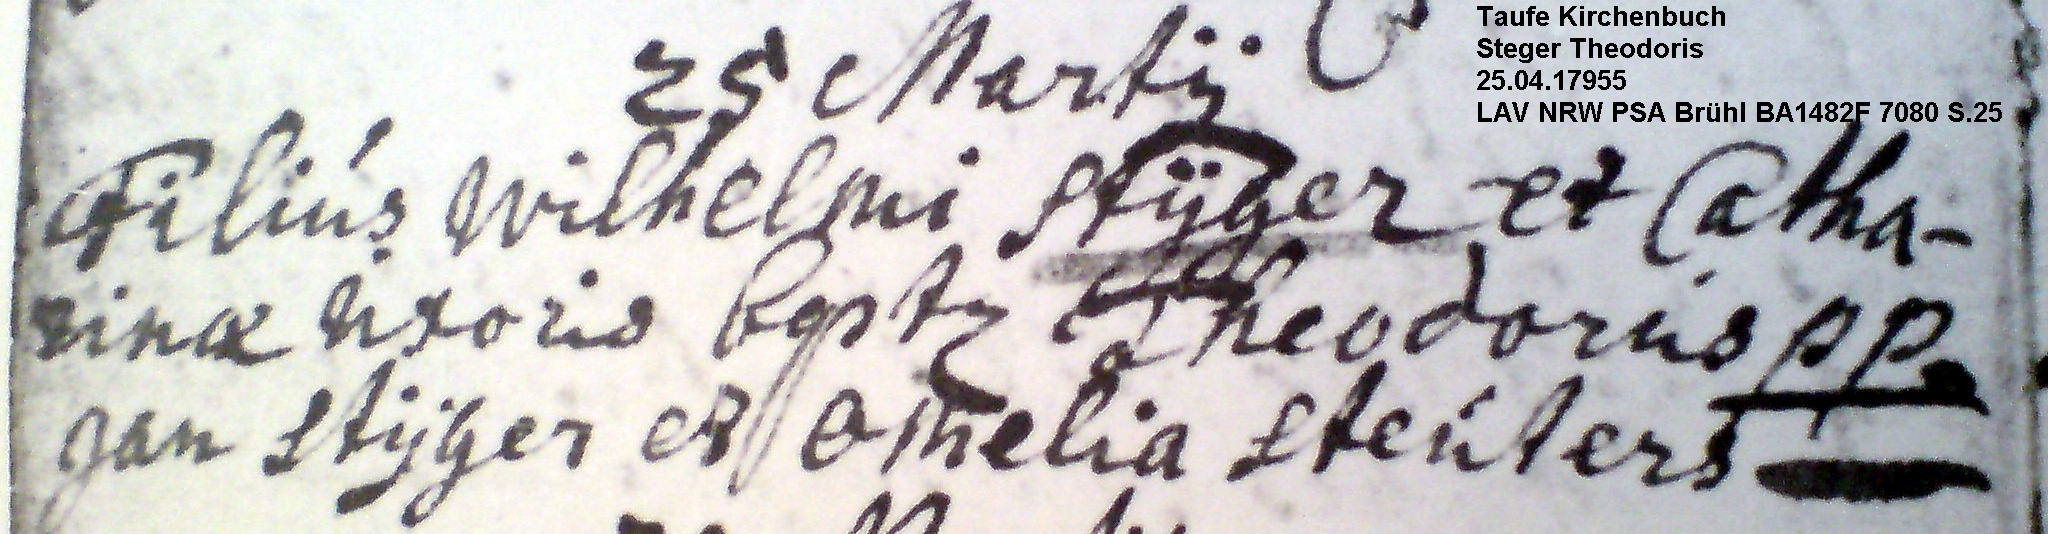 Taufe Kirchenbuch
Steger Theodoris
25.04.17955
LAV NRW PSA Brühl BA1482F 7080 S.25
25 Martÿ
Filiús Wilhelmi Stÿger et Catha-
rinæ Uxoris Theodorús pp.
Jan Stÿger et Omelia Steúlers